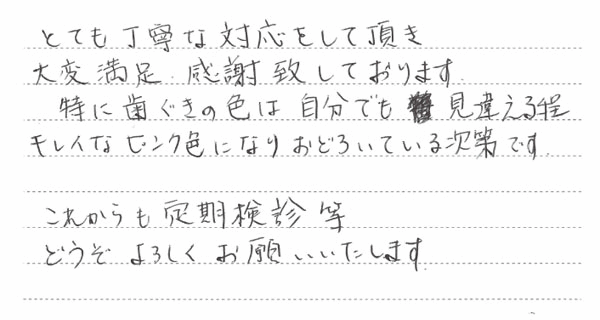 とても丁寧な対応をして頂き
大変満足、感謝致しております。
特に歯ぐきの色は自分でも見違える程
キレイなピンク色になりおどろいている次第です。
これからも定期検診等
どうぞよろしくお願いいたします。